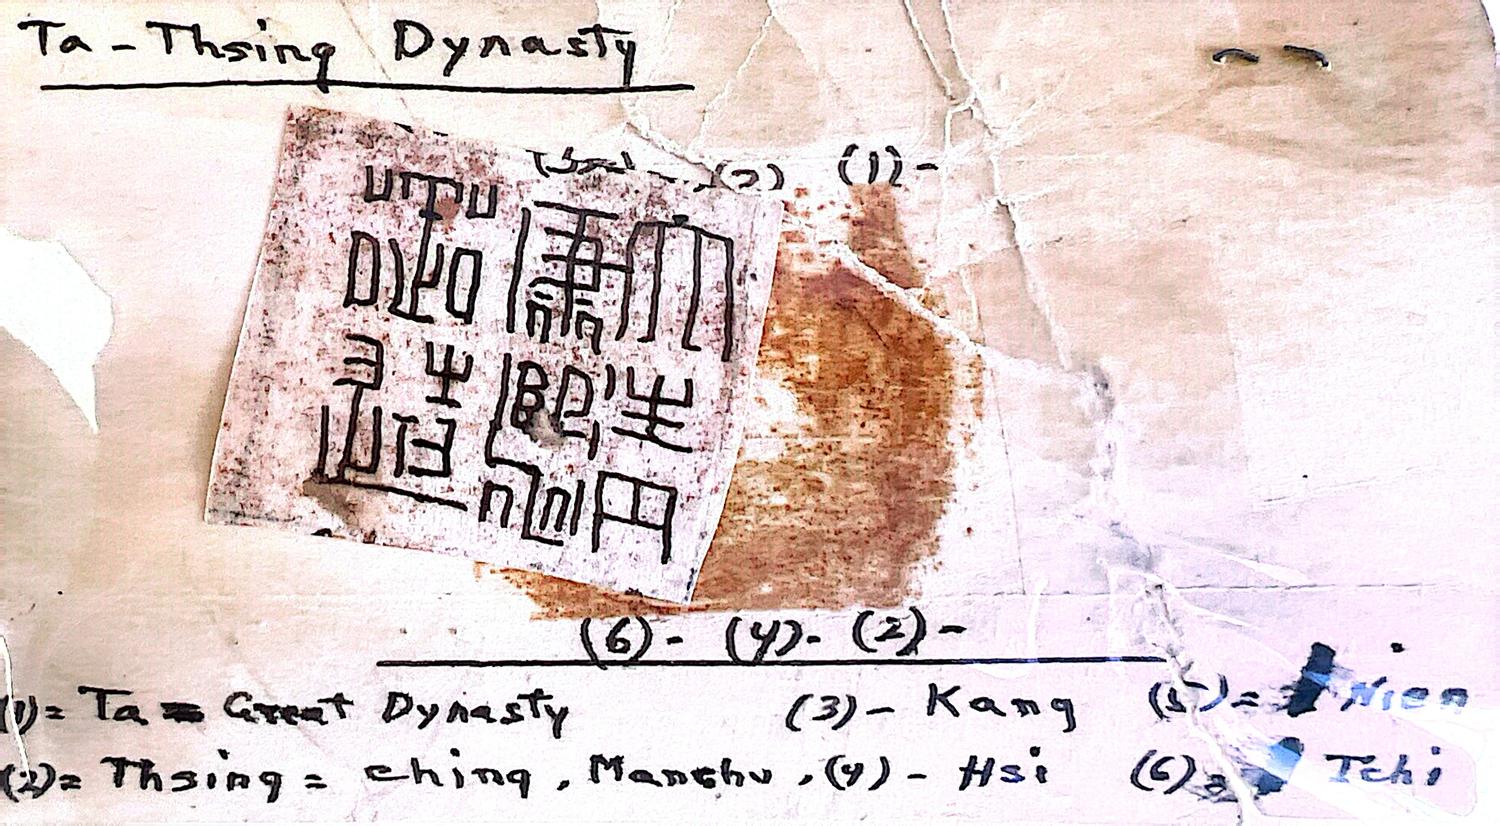 Ta-Thsing Dynasty
(2) (1)-
大清
康熙
(6)- (4)- (2)-
(1)= Ta = Great Dynasty (3)- Kang (5)= Nien
(2)= Thsing = ching, Manchu, (4)- Hsi (6)= Tchi